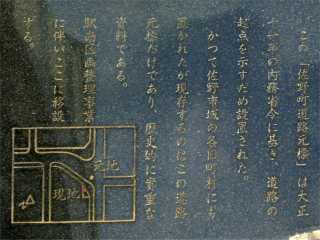 この「佐野町道路元標」は大正
十一年の内務省令に基き、道路の
起点を示すため設置された。
かつて佐野市域の各旧町村にも
置かれたが現存するのはこの道路
元標だけであり、歴史的に貴重な
資料である。
駅南区画整理事業
に伴いここに移設
する。
元地
現地